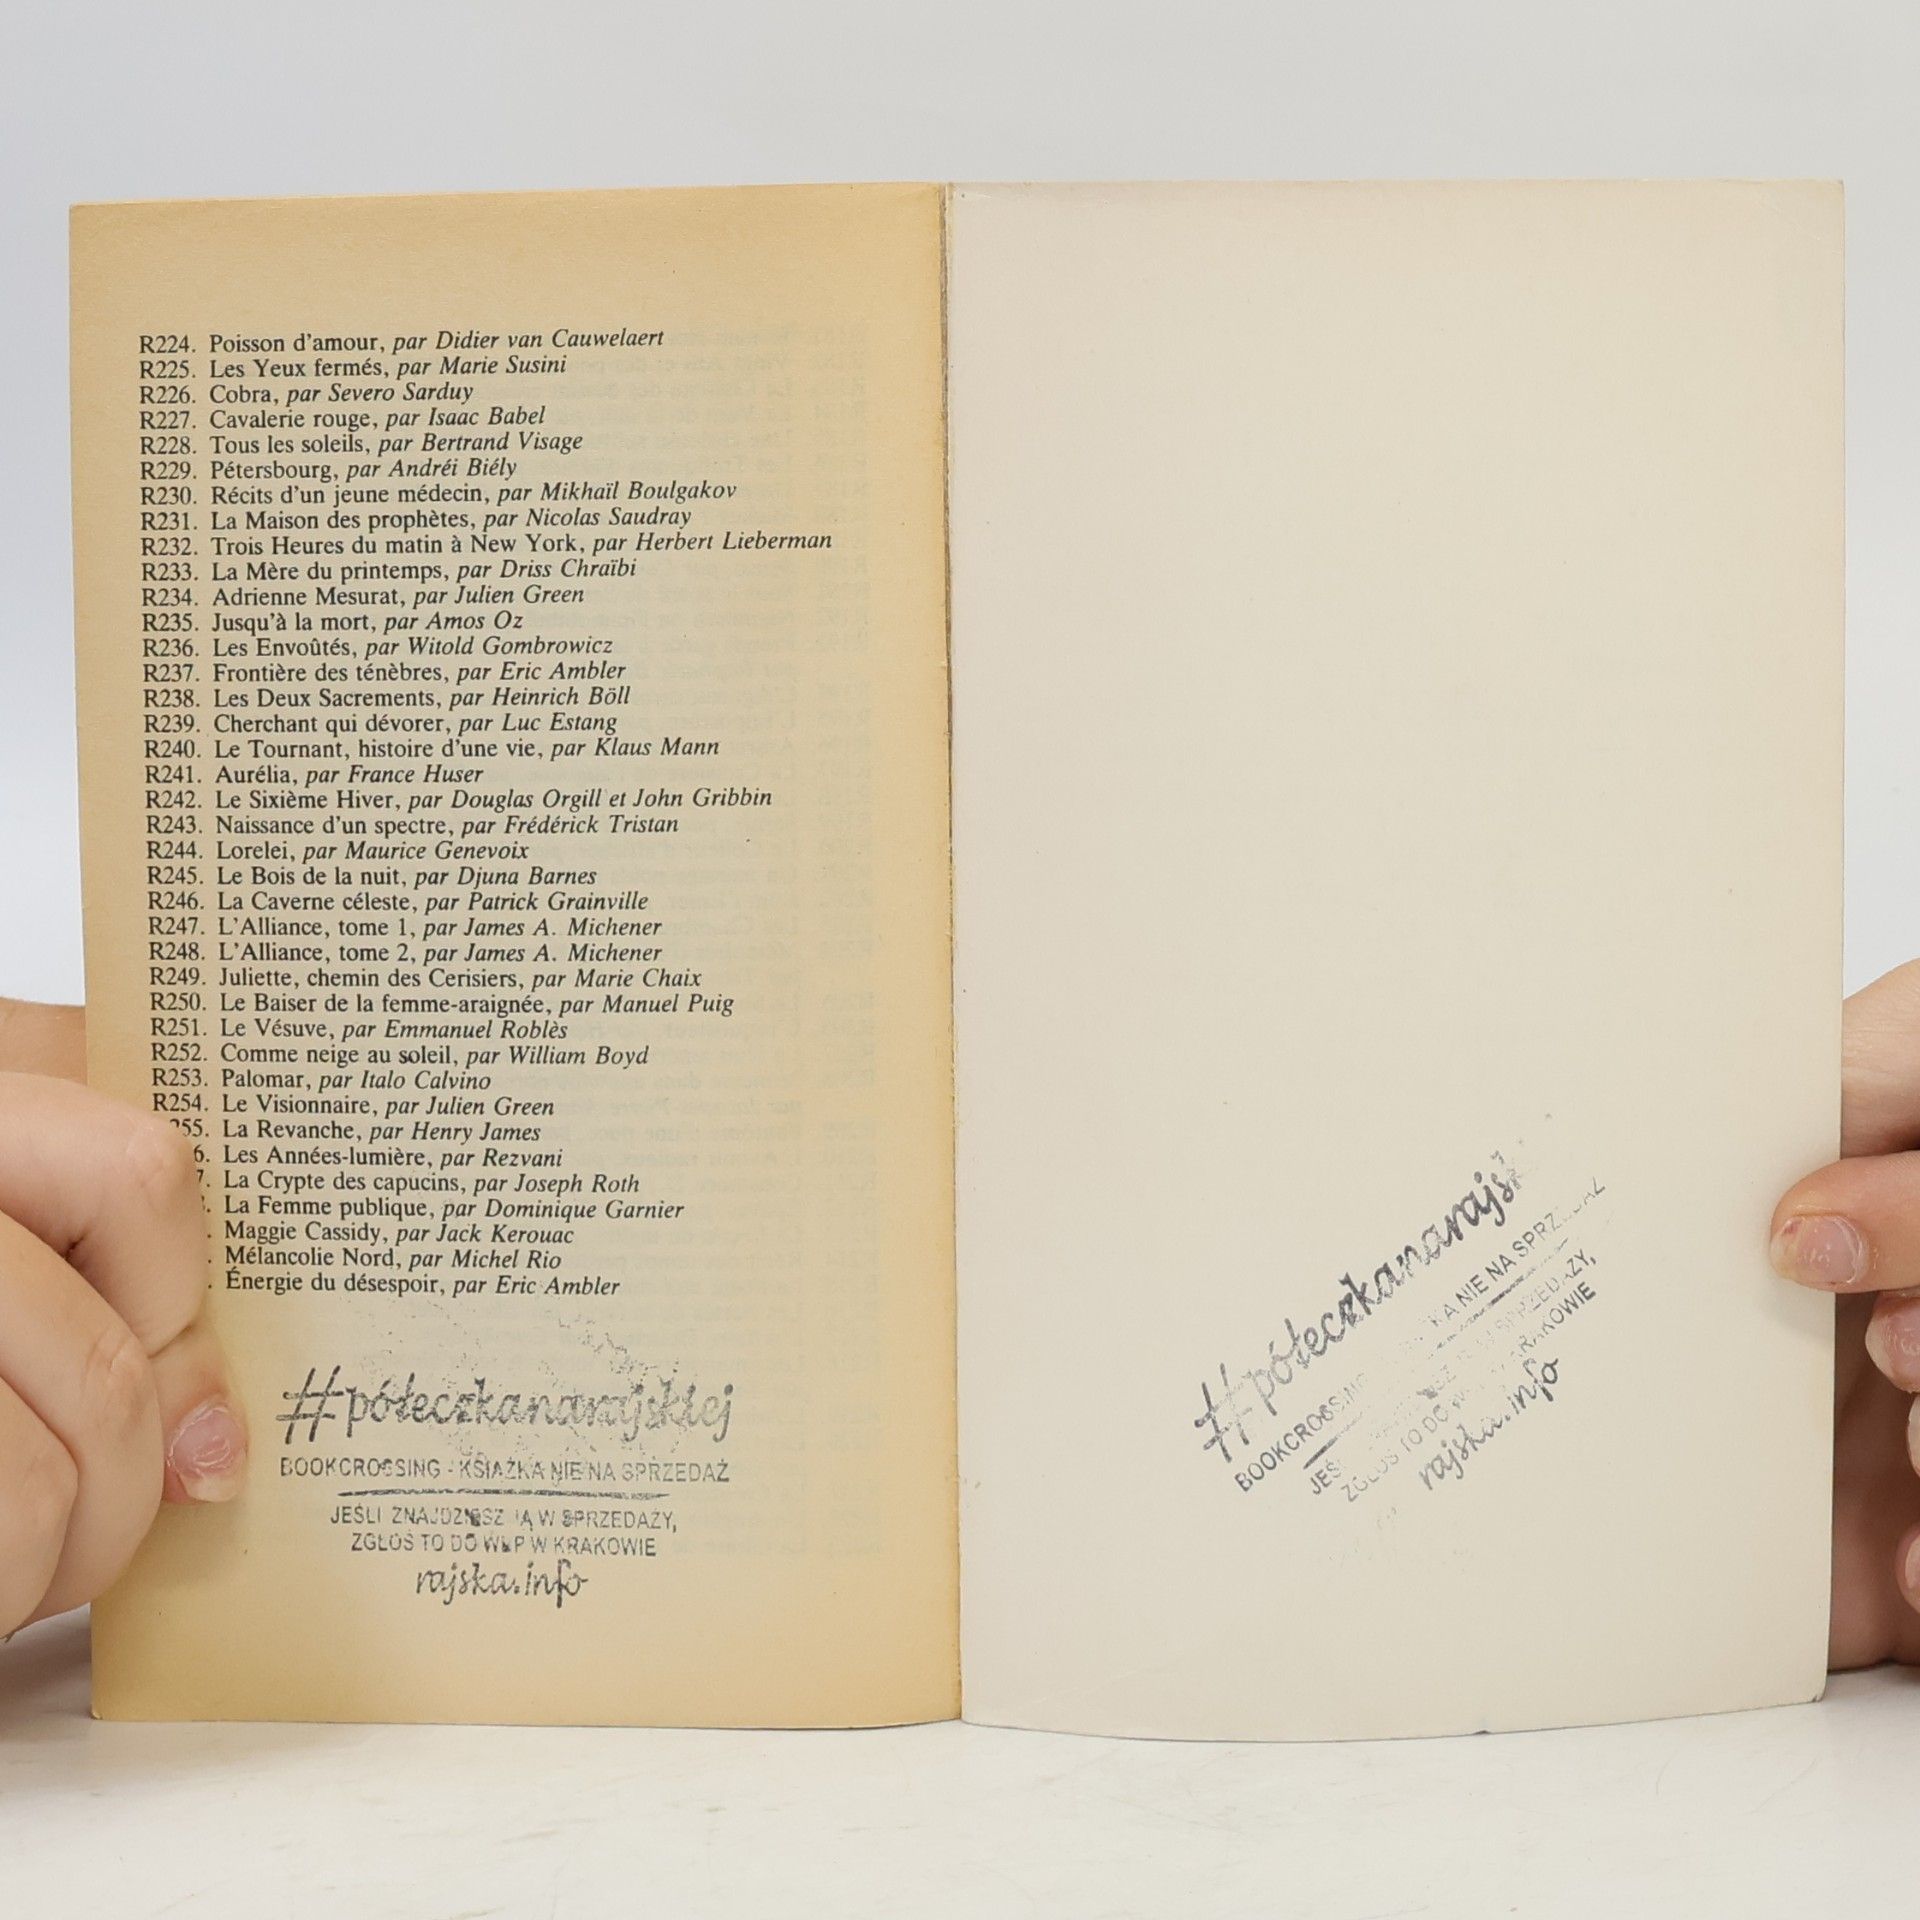 R224. Poisson d'amour, par Didier van Cauwelaert
R225. Les Yeux fermés, par Marie Susini
R226. Cobra, par Severo Sarduy
R227. Cavalerie rouge, par Isaac Babel
R228. Tous les soleils, par Bertrand Visage
R229. Pétersbourg, par Andréi Biély
R230. Récits d'un jeune médecin, par Mikhaïl Boulgakov
R231. La Maison des prophètes, par Nicolas Saudray
R232. Trois Heures du matin à New York, par Herbert Lieberman
R233. La Mère du printemps, par Driss Chraïbi
R234. Adrienne Mesurat, par Julien Green
R235. Jusqu'à la mort, par Amos Oz
R236. Les Envoûtés, par Witold Gombrowicz
R237. Frontière des ténèbres, par Eric Ambler
R238. Les Deux Sacrements, par Heinrich Böll
R239. Cherchant qui dévorer, par Luc Estang
R240. Le Tournant, histoire d'une vie, par Klaus Mann
R241. Aurélia, par France Huser
R242. Le Sixième Hiver, par Douglas Orgill et John Gribbin
R243. Naissance d'un spectre, par Frédérick Tristan
R244. Lorelei, par Maurice Genevoix
R245. Le Bois de la nuit, par Djuna Barnes
R246. La Caverne céleste, par Patrick Grainville
R247. L'Alliance, tome 1, par James A. Michener
R248. L'Alliance, tome 2, par James A. Michener
R249. Juliette, chemin des Cerisiers, par Marie Chaix
R250. Le Baiser de la femme-araignée, par Manuel Puig
R251. Le Vésuve, par Emmanuel Roblès
R252. Comme neige au soleil, par William Boyd
R253. Palomar, par Italo Calvino
R254. Le Visionnaire, par Julien Green
55. La Revanche, par Henry James
6. Les Années-lumière, par Rezvani
7. La Crypte des capucins, par Joseph Roth
. La Femme publique, par Dominique Garnier
. Maggie Cassidy, par Jack Kerouac
. Mélancolie Nord, par Michel Rio
. Énergie du désespoir, par Eric Ambler
#półeczkanarajskiej
BOOKCROSSING - KSIĄŻKA NIE NA SPRZEDAŻ
JEŚLI ZNAJDZIESZ JĄ W SPRZEDAŻY,
ZGŁOŚ TO DO WBP W KRAKOWIE
rajska.info
#półeczkanarajsk
BOOKCROSSING NIE NA SPRZEDAŻ
W SPRZEDAŻY,
ZGŁOŚ TO DO W KRAKOWIE
rajska.info